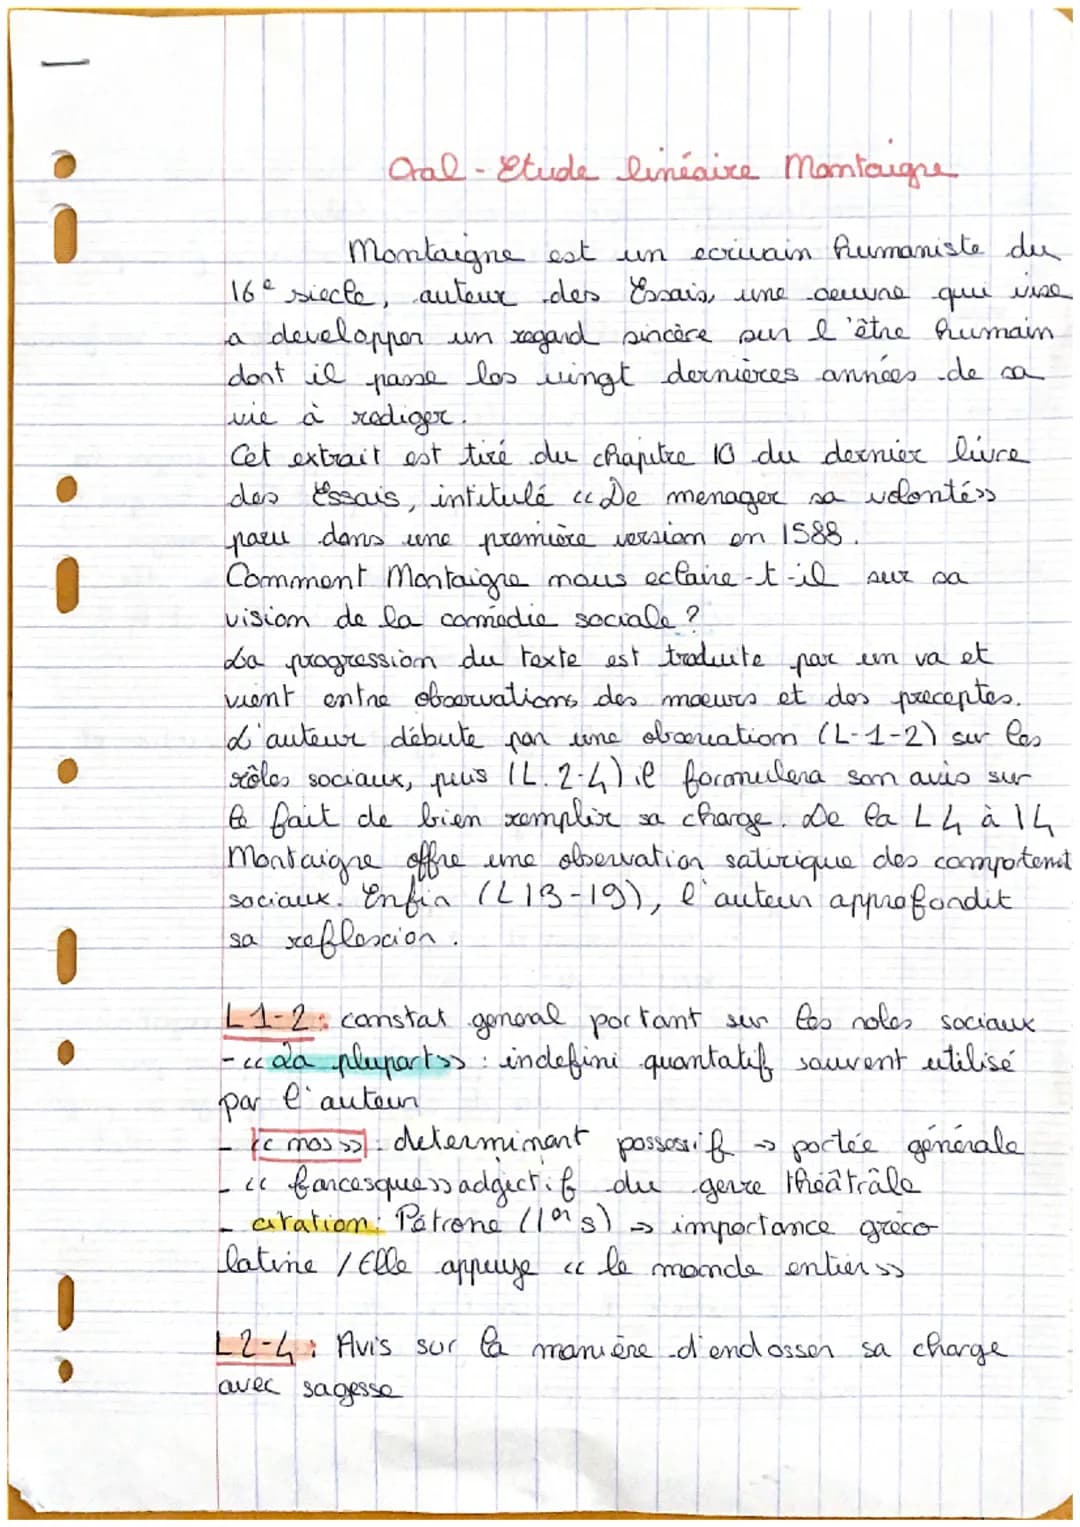 Oral - Etude linéaire Montaigne
Montaigne est un ecrivain humaniste du
16e siecle, auteur des Essais, une oeuvre qui vise
a developper un regard sincère sur l'être humain
dont il passe les vingt dernières années de sa
vie à rediger.
Cet extrait est tiré du chapitre 10 du dernier livre
des Essais, intitulé « De menager sa volonté »
paru dans une première version en 1588.
Comment Montaigne nous eclaire-t-il sur sa
vision de la comédie sociale ?
La progression du texte est traduite par un va et
vient entre observations des moeurs et des preceptes.
L'auteur débute par une observation (L-1-2) sur les
rôles sociaux, puis (L.2-4) il formulera son avis sur
le fait de bien remplir sa charge. De la L4 à 14
Montaigne offre une observation satirique des comportemt
sociaux. Enfin (L13-19), l'auteur approfondit
sa reflexion.
L1-2 : constat general portant sur les roles sociaux
- « La plupart » : indefini quantatif souvent utilisé
par l'auteur
- « nos » : determinant possessif → portée générale
- « farcesque » adgectif du genre théâtrâle
- citation : Pétrone (1er s) → importance gréco
latine / Elle appuye « le monde entier »
L2-4 : Avis sur la manière d'endosser sa charge
avec sagesse